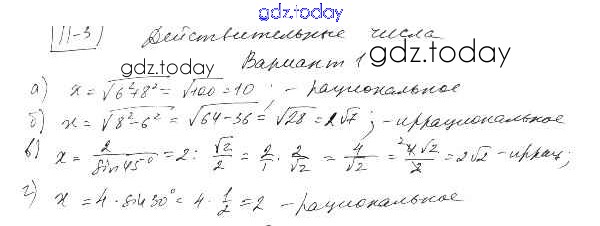 gdz.today
П-3 Действительные числа
gdz.today
gdz.today
Вариант 1
а) x = √6²+8² = √100 = 10 ; - рациональное
б) x = √8²-6² = √64-36 = √28 = 2√7 ; - иррациональное
в) x = 2/sin45° = 2 : √2/2 = 2/1 · 2/√2 = 4/√2 = 4√2/2 = 2√2 - иррац;
г) x = 4 · sin30° = 4 · 1/2 = 2 - рациональное